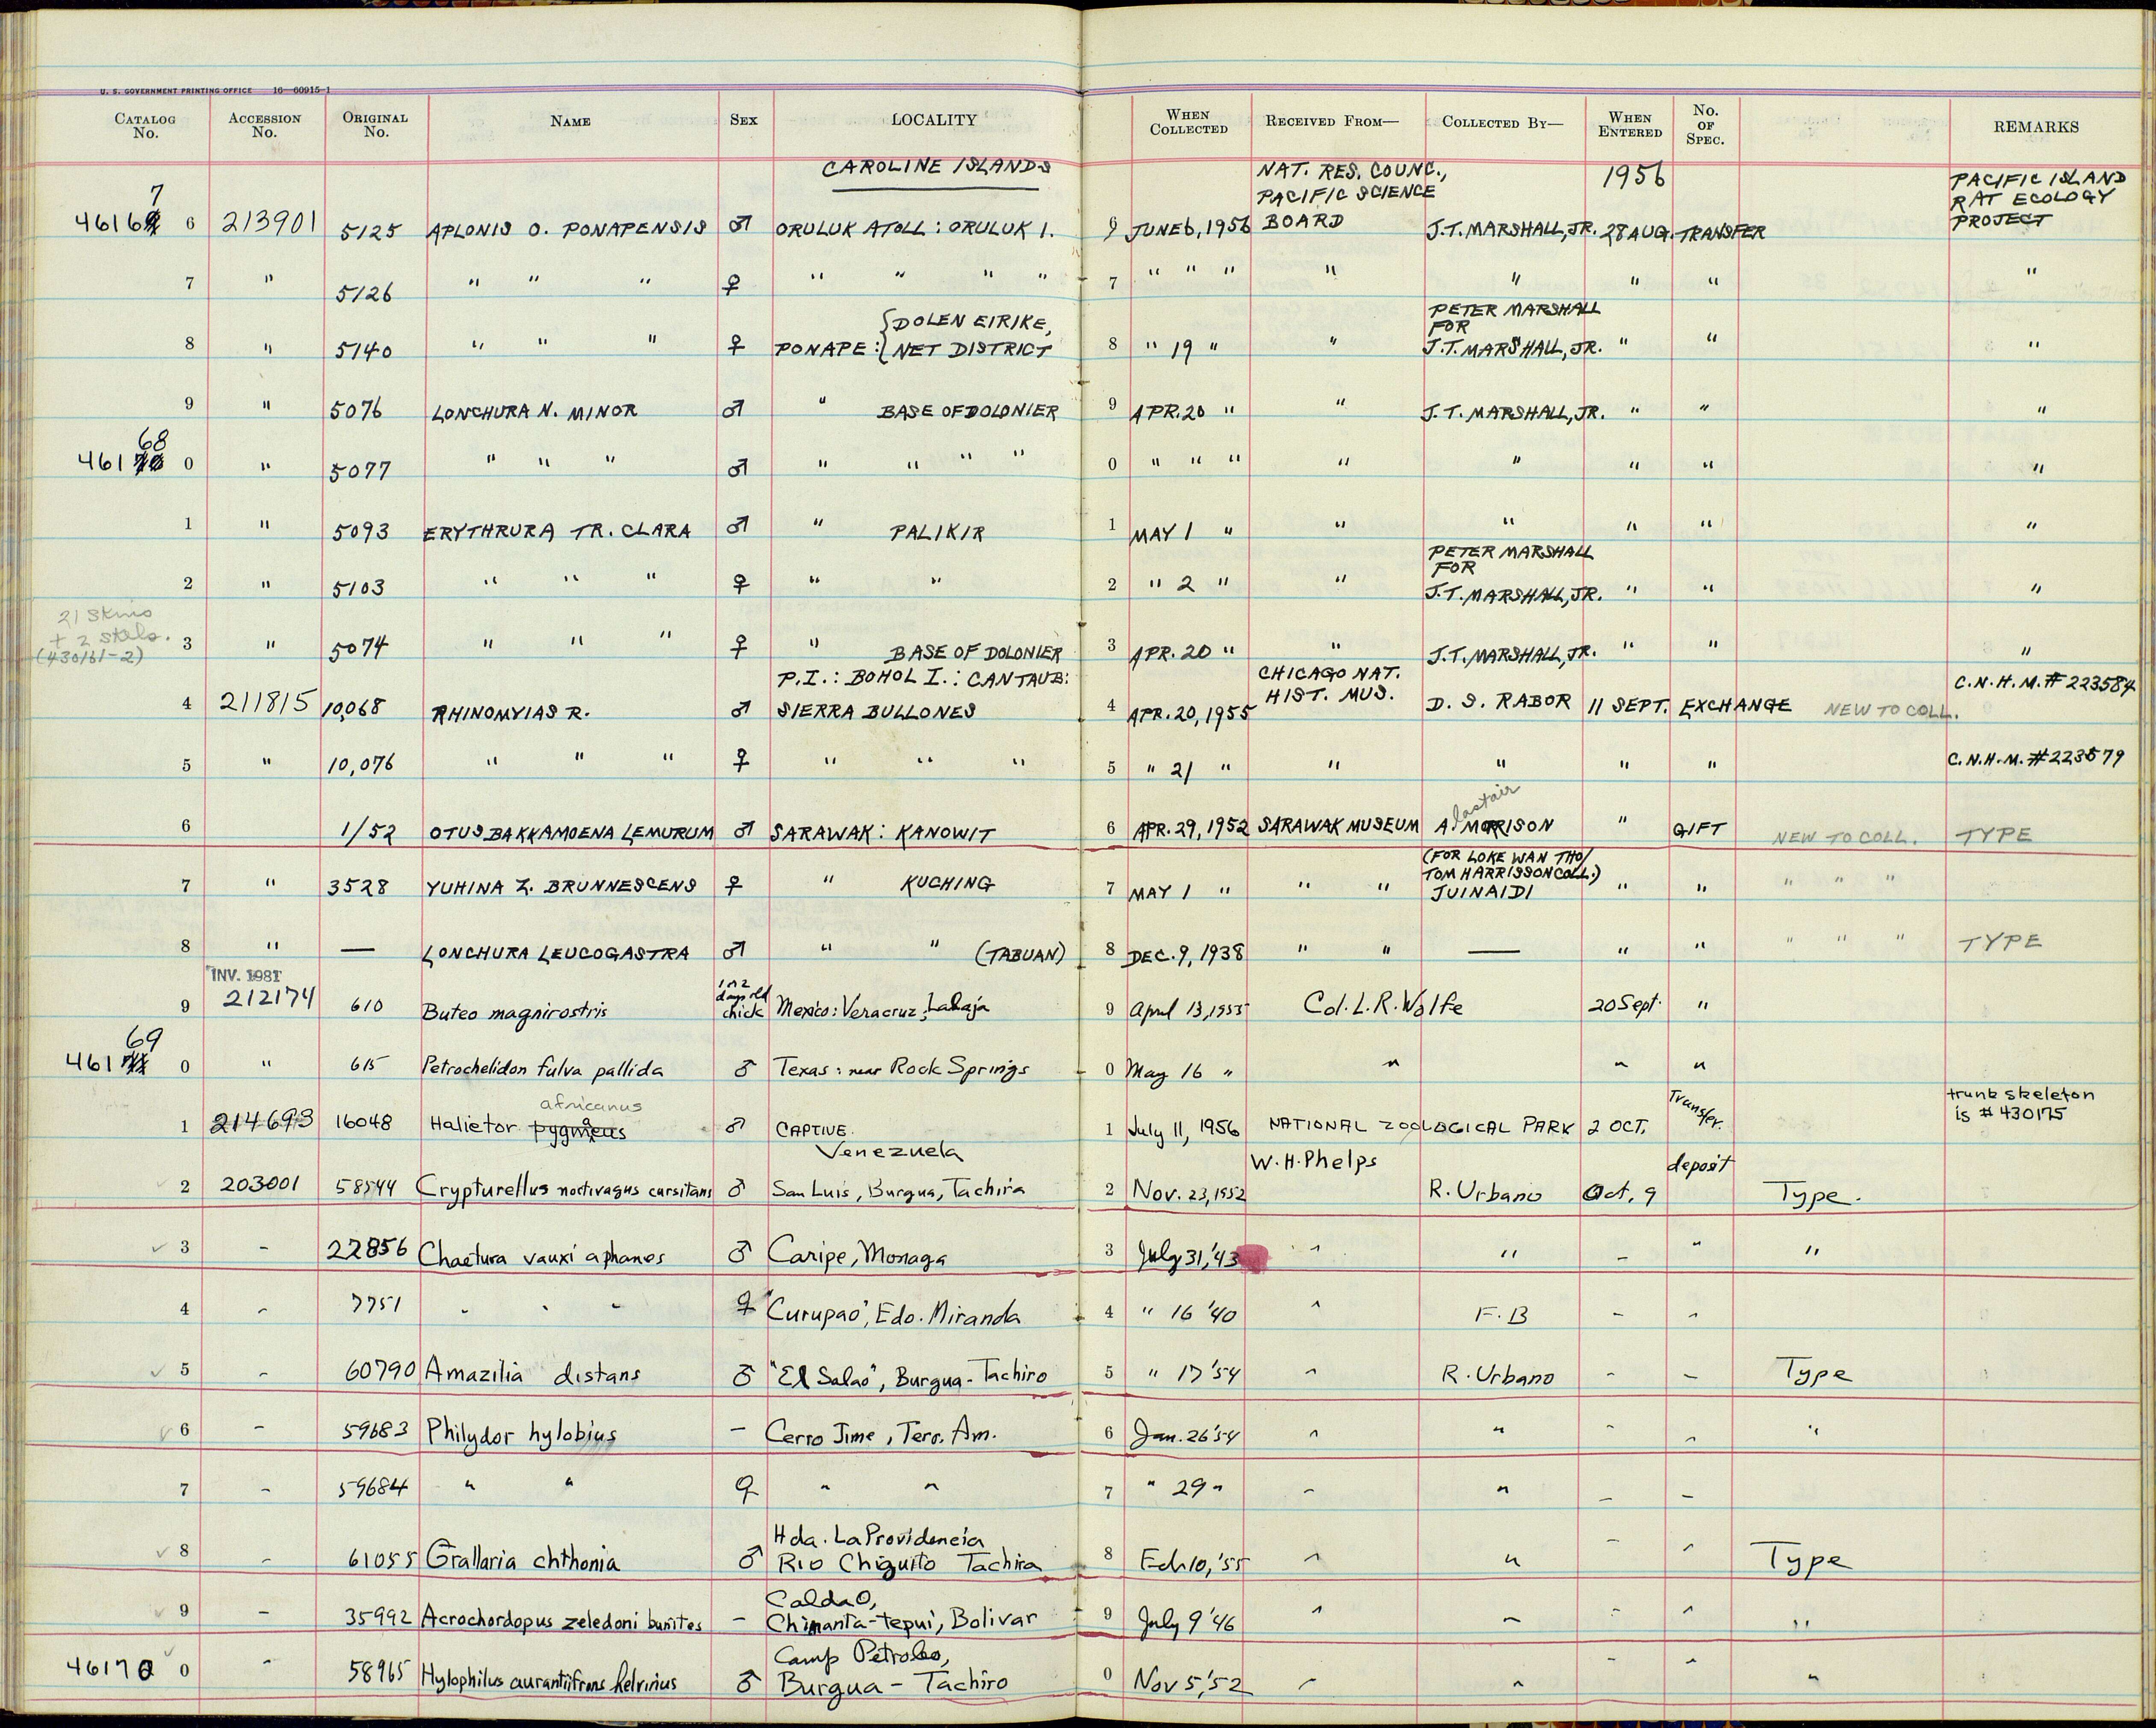 U. S. GOVERNMENT PRINTING OFFICE 16—60915-1
CATALOG No. ACCESSION No. ORIGINAL No. NAME SEX LOCALITY WHEN COLLECTED RECEIVED FROM— COLLECTED BY— WHEN ENTERED No. OF SPEC. REMARKS
CAROLINE ISLANDS NAT. RES. COUNC., PACIFIC SCIENCE BOARD 1956 PACIFIC ISLAND RAT ECOLOGY PROJECT
46167 6 213901 5125 APLONIS O. PONAPENSIS ♂ ORULUK ATOLL: ORULUK I. 6 JUNE 6, 1956 J.T. MARSHALL, JR. 28 AUG. TRANSFER
7 " 5126 " " " ♀ " " " " 7 " " " " " " " "
8 " 5140 " " " ♀ PONAPE: { DOLEN EIRIKE, NET DISTRICT 8 " 19 " " PETER MARSHALL FOR J.T. MARSHALL, JR. " " "
9 " 5076 LONCHURA N. MINOR ♂ " BASE OF DOLONIER 9 APR. 20 " " J.T. MARSHALL, JR. " " "
46168 0 " 5077 " " " ♂ " " " " 0 " " " " " " " "
1 " 5093 ERYTHRURA TR. CLARA ♂ " PALIKIR 1 MAY 1 " " " " " "
2 " 5103 " " " ♀ " " 2 " 2 " " PETER MARSHALL FOR J.T. MARSHALL, JR. " " "
21 skins + 2 skels. (430161-2)
3 " 5074 " " " ♀ " BASE OF DOLONIER 3 APR. 20 " " J.T. MARSHALL, JR. " " "
4 211815 10,068 RHINOMYIAS R. ♂ P.I.: BOHOL I.: CANTAUB: SIERRA BULLONES 4 APR. 20, 1955 CHICAGO NAT. HIST. MUS. D. S. RABOR 11 SEPT. EXCHANGE NEW TO COLL. C.N.H.M. # 223584
5 " 10,076 " " " ♀ " " " 5 " 21 " " " " " C.N.H.M. # 223579
6 1/52 OTUS BAKKAMOENA LEMURUM ♂ SARAWAK: KANOWIT 6 APR. 29, 1952 SARAWAK MUSEUM Alastair MORRISON " GIFT NEW TO COLL. TYPE
7 " 3528 YUHINA Z. BRUNNESCENS ♀ " KUCHING 7 MAY 1 " " " (FOR LOKE WAN THO/ TOM HARRISSON COLL.) JUINAIDI " " " " "
8 " — LONCHURA LEUCOGASTRA ♂ " " (TABUAN) 8 DEC. 9, 1938 " " — " " " " " TYPE
INV. 1981
9 212174 610 Buteo magnirostris 1 or 2 days old chick Mexico: Veracruz; Lahaja 9 April 13, 1955 Col. L. R. Wolfe 20 Sept. "
46169 0 " 615 Petrochelidon fulva pallida ♂ Texas: near Rock Springs 0 May 16 " " " "
africanus
1 214693 16048 Halietor pygmaeus ♂ CAPTIVE 1 July 11, 1956 NATIONAL ZOOLOGICAL PARK 2 OCT. Transfer. trunk skeleton is # 430175
Venezuela
2 203001 58544 Crypturellus noctivagus cursitans ♂ San Luis, Burgua, Tachira 2 Nov. 23, 1952 W. H. Phelps R. Urbano Oct. 9 deposit Type.
3 " 22856 Chaetura vauxi aphanes ♂ Caripe, Monaga 3 July 31, '43 " " " " "
4 " 7751 " " " ♀ "Curupao", Edo. Miranda 4 " 16 '40 " F. B " "
5 " 60790 Amazilia distans ♂ "El Salao", Burgua - Tachiro 5 " 17 '54 " R. Urbano " " Type
6 " 59683 Philydor hylobius — Cerro Jime, Terr. Am. 6 Jan. 26 '54 " " " " "
7 " 59684 " " ♀ " " 7 " 29 " " " " "
8 " 61055 Grallaria chthonia ♂ Hda. La Providencia Rio Chiguito Tachira 8 Feb 10, '55 " " " " Type
9 " 35992 Acrochordopus zeledoni bunites — Caldao, Chimanta-tepui, Bolivar 9 July 9 '46 " " " " "
46170 0 " 58965 Hylophilus aurantiifrons helvinus ♂ Camp Petroleo, Burgua - Tachiro 0 Nov 5, '52 " " " " "